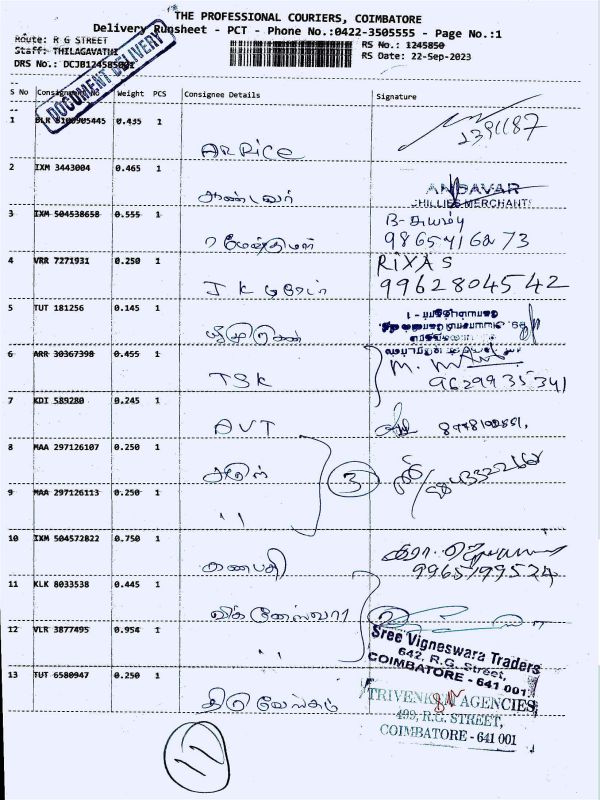 THE PROFESSIONAL COURIERS, COIMBATORE
Delivery Runsheet - PCT - Phone No.:0422-3505555 - Page No.:1
Route: R G STREET
RS No.: 1245850
Staff: THILAGAVATHI
RS Date: 22-Sep-2023
DRS No.:
DOCUMENT DELIVERY
S No Consignment No Weight PCS Consignee Details Signature
1 0.435 1
AR Rice
2 IXM 3443004 0.465 1
ஆண்டவர்
ANDAVAR
CHILLIES MERCHANTS
3 IXM 504538658 0.555 1
4 VRR 7271931 0.250 1
RIXAS
J K டிரேடர்
9962804542
5 TUT 181256 0.145 1
6 ARR 30367398 0.455 1
TSK
9629935341
7 KDI 589280 0.245 1
AVT
8 MAA 297126107 0.250 1
3
9 MAA 297126113 0.250 1
"
10 IXM 504572822 0.750 1
கணபதி
9965799524
11 KLK 8033538 0.445 1
விக்னேஸ்வரா
2
12 VLR 3877495 0.954 1
"
Sree Vigneswara Traders
642, R.G. Street,
COIMBATORE - 641 001
13 TUT 6580947 0.250 1
திருவேங்கடம்
TRIVENKEM AGENCIES
499, R.G. STREET,
COIMBATORE - 641 001
11